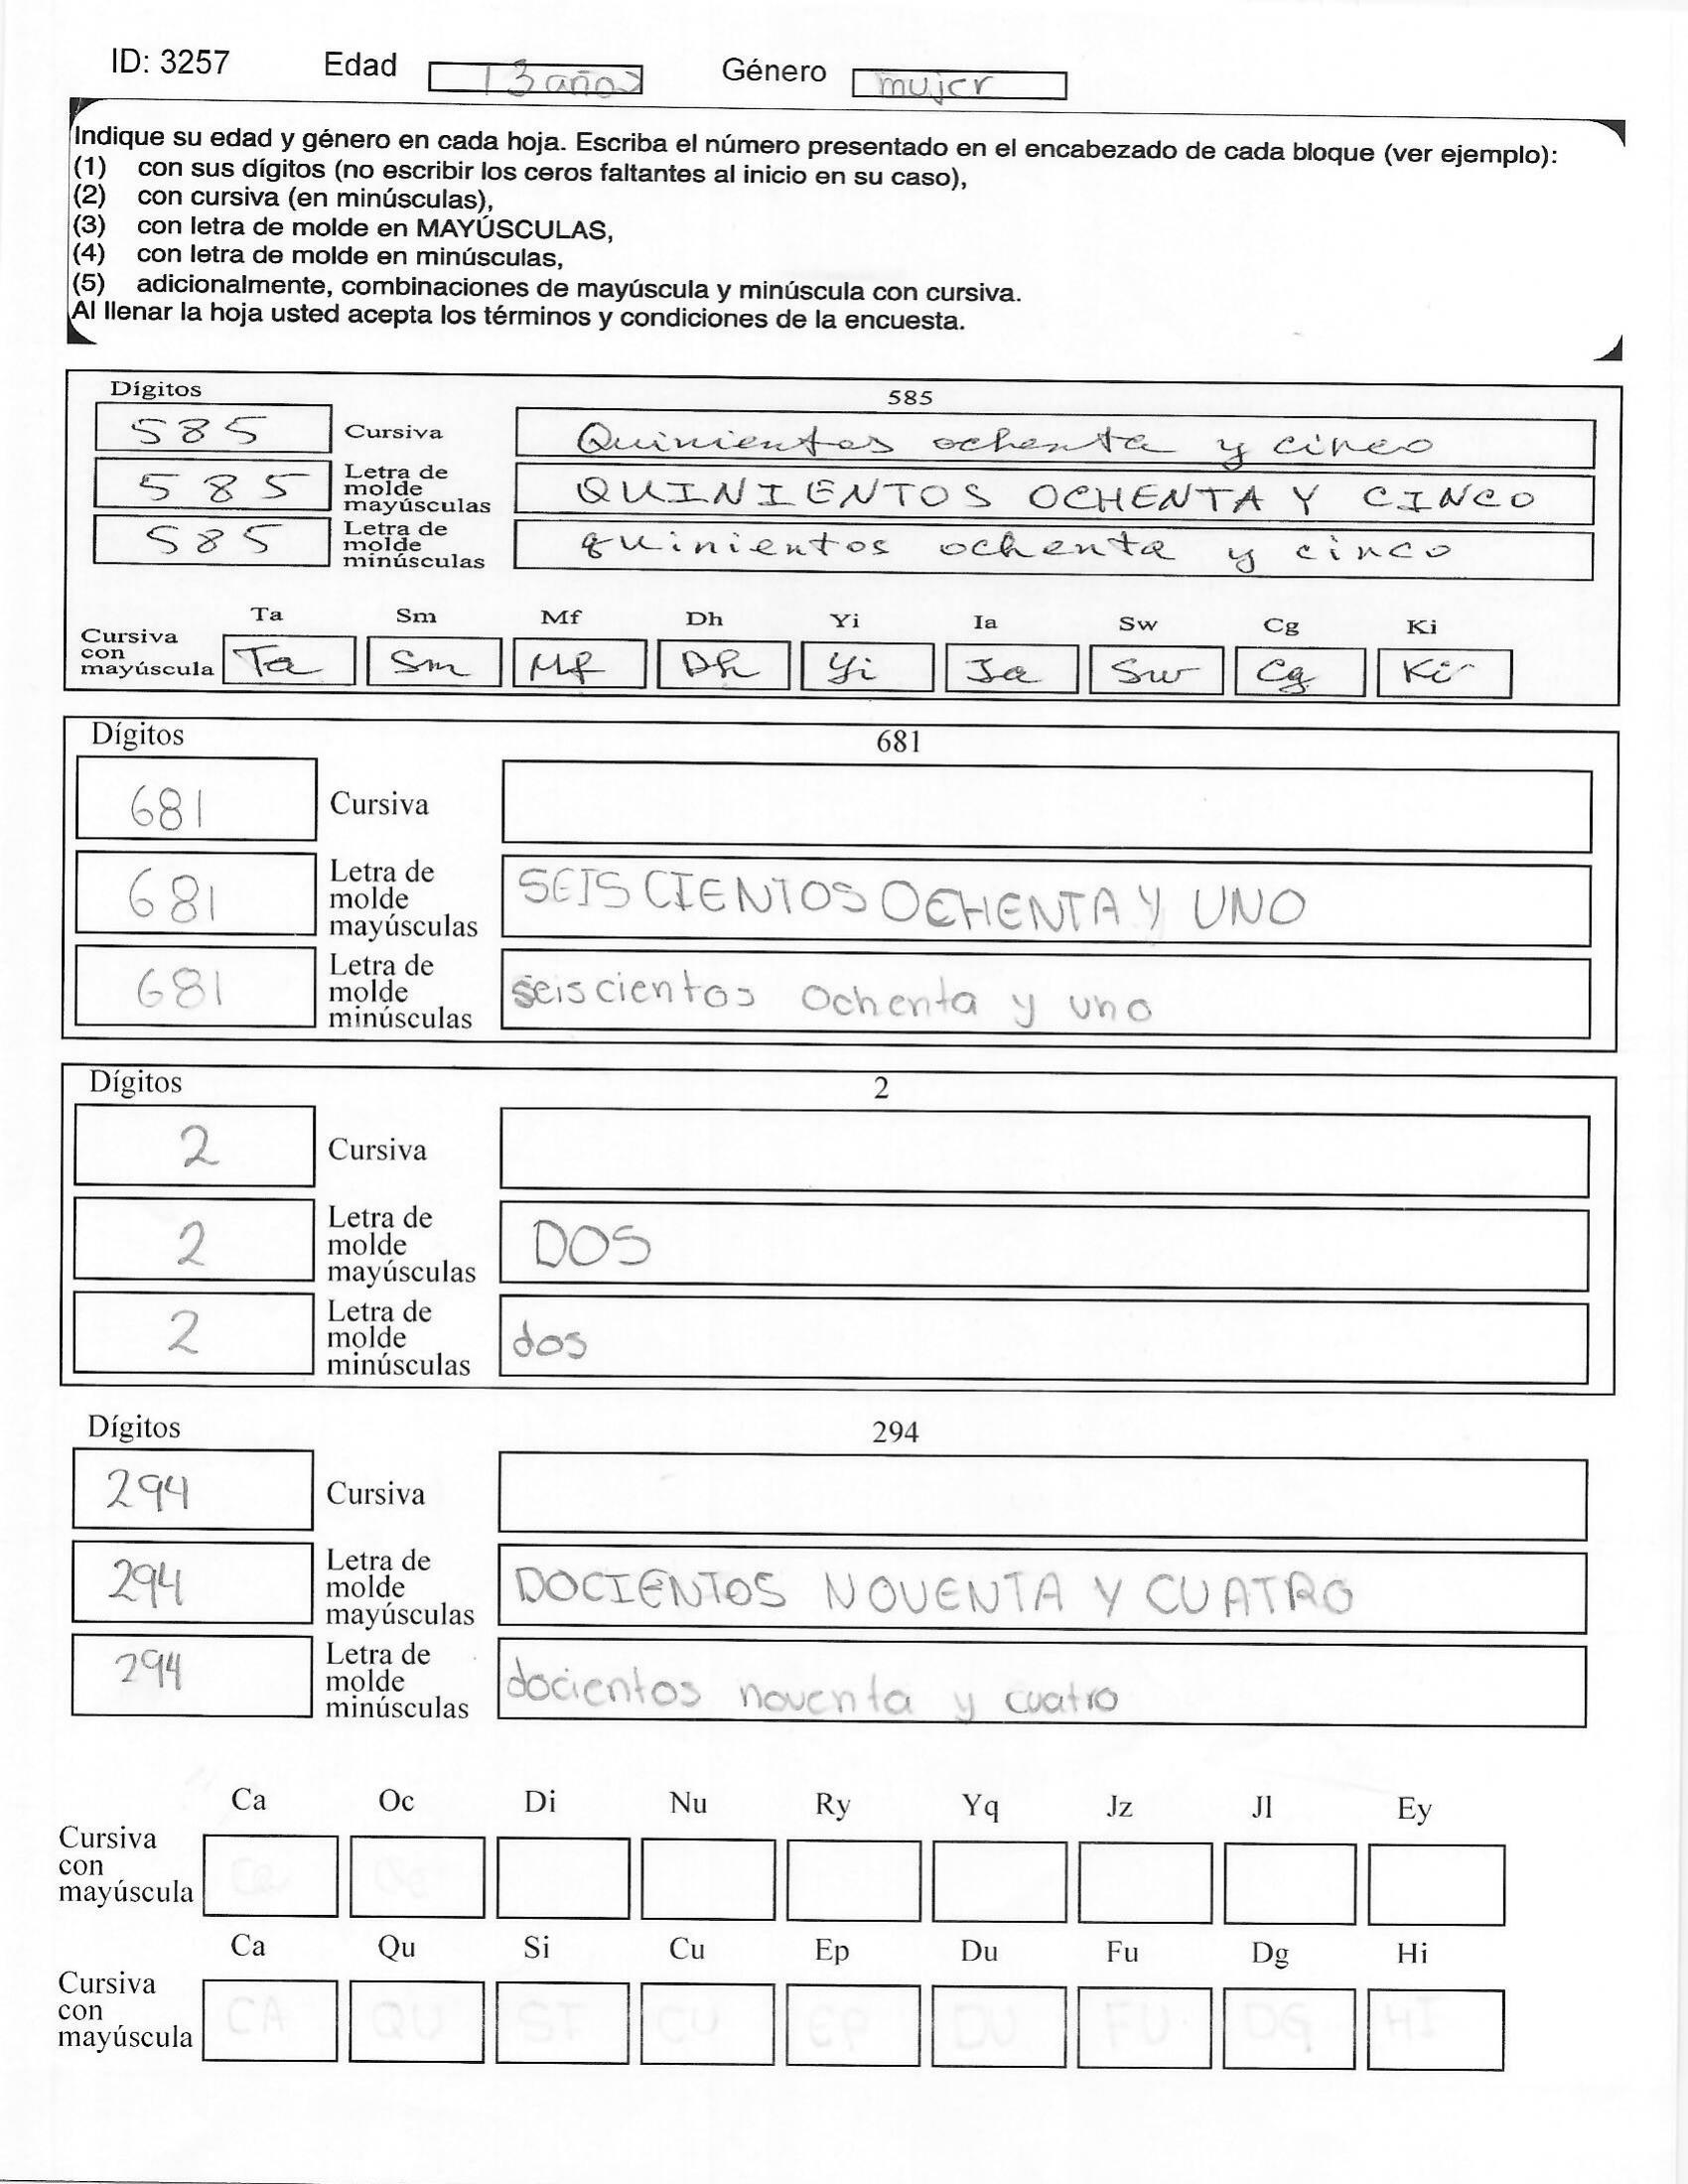 ID: 3257 Edad 13 años Género mujer
Indique su edad y género en cada hoja. Escriba el número presentado en el encabezado de cada bloque (ver ejemplo):
(1) con sus dígitos (no escribir los ceros faltantes al inicio en su caso),
(2) con cursiva (en minúsculas),
(3) con letra de molde en MAYÚSCULAS,
(4) con letra de molde en minúsculas,
(5) adicionalmente, combinaciones de mayúscula y minúscula con cursiva.
Al llenar la hoja usted acepta los términos y condiciones de la encuesta.
Dígitos 585
585 Cursiva Quinientos ochenta y cinco
585 Letra de molde mayúsculas QUINIENTOS OCHENTA Y CINCO
585 Letra de molde minúsculas quinientos ochenta y cinco
Ta Sm Mf Dh Yi Ia Sw Cg Ki
Cursiva con mayúscula Ta Sm Mf Dh Yi Ia Sw Cg Ki
Dígitos 681
681 Cursiva
681 Letra de molde mayúsculas SEISCIENTOS OCHENTA Y UNO
681 Letra de molde minúsculas seiscientos ochenta y uno
Dígitos 2
2 Cursiva
2 Letra de molde mayúsculas DOS
2 Letra de molde minúsculas dos
Dígitos 294
294 Cursiva
294 Letra de molde mayúsculas DOCIENTOS NOVENTA Y CUATRO
294 Letra de molde minúsculas docientos noventa y cuatro
Ca Oc Di Nu Ry Yq Jz Jl Ey
Cursiva con mayúscula
Ca Qu Si Cu Ep Du Fu Dg Hi
Cursiva con mayúscula CA QU SI CU EP DU FU DG HI